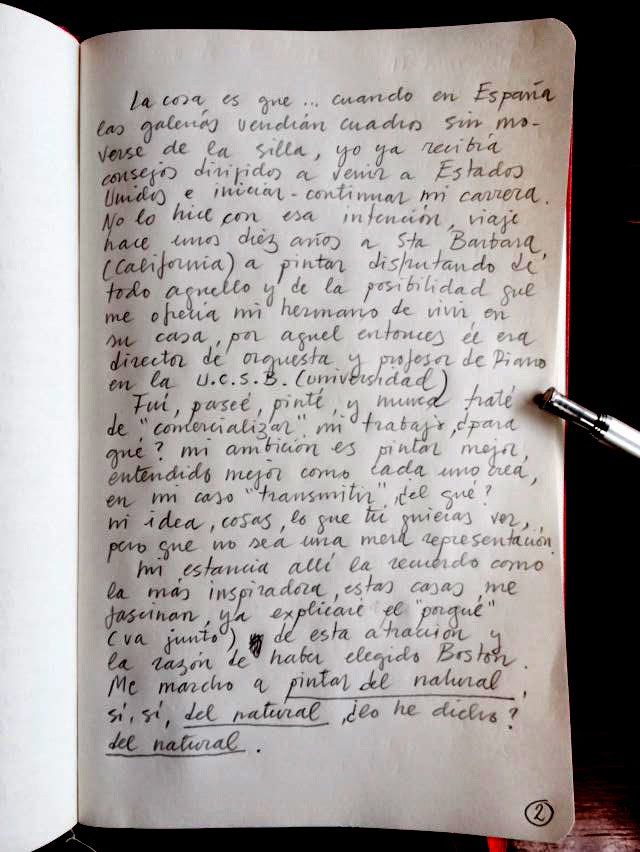 La cosa es que ... cuando en España
las galerías vendían cuadros sin mo-
verse de la silla, yo ya recibía
consejos dirijidos a venir a Estados
Unidos e iniciar-continuar mi carrera.
No lo hice con esa intención, viajé
hace unos diez años a Sta Barbara,
(California) a pintar disfrutando de
todo aquello y de la posibilidad que
me ofrecía mi hermano de vivir en
su casa, por aquel entonces él era
director de orquesta y profesor de Piano
en la U.C.S.B. (universidad)
Fuí, paseé, pinté, y nunca traté
de "comercializar" mi trabajo, ¿para
qué? mi ambición es pintar mejor,
entendido mejor como cada uno crea,
en mi caso "transmitir", ¿el qué?
mi idea, cosas, lo que tú quieras ver,
pero que no sea una mera representación.
Mi estancia allí la recuerdo como
la más inspiradora, estas casas me
fascinan, ya explicaré el "porqué"
(va junto) de esta atracción y
la razón de haber elegido Boston.
Me marcho a pintar del natural,
sí, sí, del natural, ¿lo he dicho?
del natural.
2